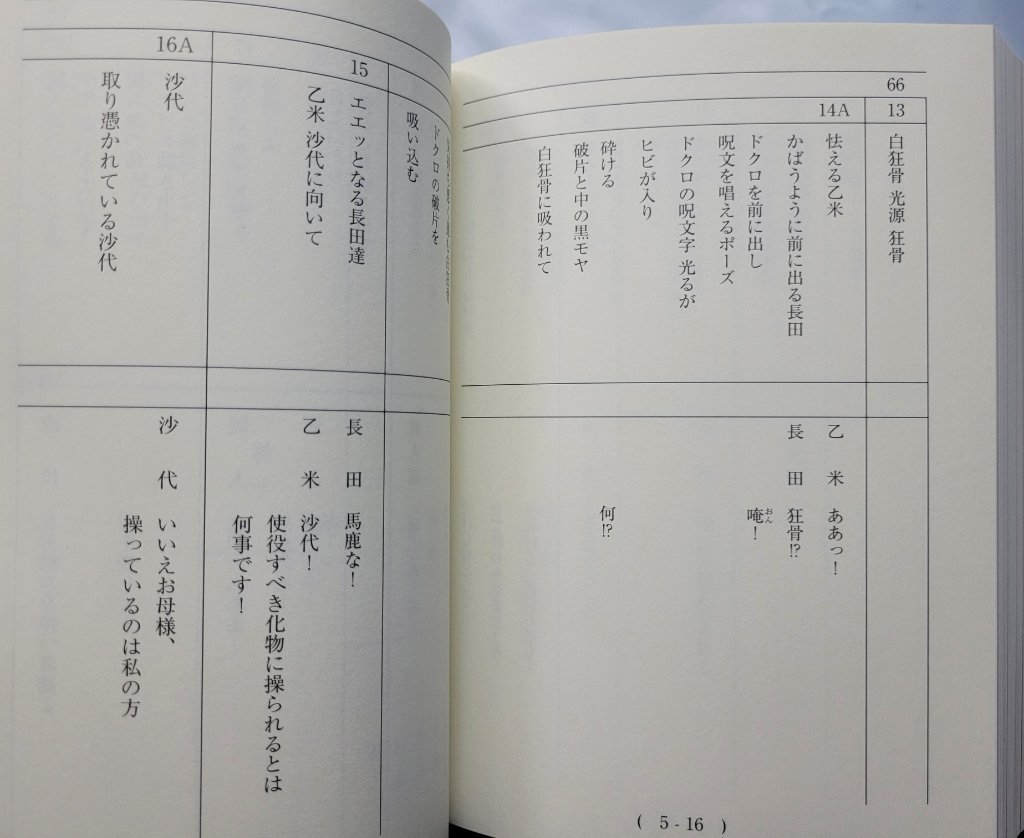 66
13
白狂骨 光源 狂骨
14A
怯える乙米
乙米 ああっ！
かばうように前に出る長田
長田 狂骨⁉
ドクロを前に出し
唵！
おん
呪文を唱えるポーズ
ドクロの呪文字 光るが
ヒビが入り
砕ける
何⁉
破片と中の黒モヤ
白狂骨に吸われて
( 5 - 16 )
ドクロの破片を
吸い込む
15
エエッとなる長田達
長田 馬鹿な！
乙米 沙代に向いて
乙米 沙代！
使役すべき化物に操られるとは
何事です！
16A
沙代
沙代 いいえお母様、
取り憑かれている沙代
操っているのは私の方